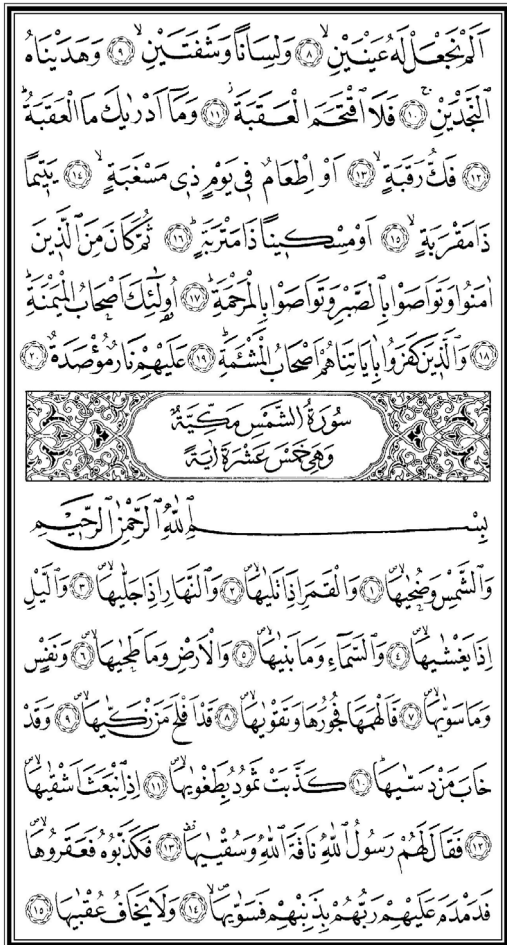 اَلَمْ نَجْعَلْ لَهُ عَيْنَيْنِۙ ﴿٨﴾ وَلِسَانًا وَشَفَتَيْنِۙ ﴿٩﴾ وَهَدَيْنَاهُ
النَّجْدَيْنِۚ ﴿١٠﴾ فَلَا اقْتَحَمَ الْعَقَبَةَۘ ﴿١١﴾ وَمَٓا اَدْرٰيكَ مَا الْعَقَبَةُۜ
﴿١٢﴾ فَكُّ رَقَبَةٍۙ ﴿١٣﴾ اَوْ اِطْعَامٌ ف۪ي يَوْمٍ ذ۪ي مَسْغَبَةٍۙ ﴿١٤﴾ يَت۪يمًا
ذَا مَقْرَبَةٍۙ ﴿١٥﴾ اَوْ مِسْك۪ينًا ذَا مَتْرَبَةٍۜ ﴿١٦﴾ ثُمَّ كَانَ مِنَ الَّذ۪ينَ
اٰمَنُوا وَتَوَاصَوْا بِالصَّبْرِ وَتَوَاصَوْا بِالْمَرْحَمَةِۜ ﴿١٧﴾ اُو۬لٰٓئِكَ اَصْحَابُ الْمَيْمَنَةِۜ
﴿١٨﴾ وَالَّذ۪ينَ كَفَرُوا بِاٰيَاتِنَا هُمْ اَصْحَابُ الْمَشْـَٔمَةِۜ ﴿١٩﴾ عَلَيْهِمْ نَارٌ مُؤْصَدَةٌ ﴿٢٠﴾
سُورَةُ الشَّمْسِ مَكِّيَّةٌ
وَهِيَ خَمْسَ عَشْرَةَ اٰيَةً
بِسْمِ اللّٰهِ الرَّحْمٰنِ الرَّح۪يمِ
وَالشَّمْسِ وَضُحٰيهَاۙۖ ﴿١﴾ وَالْقَمَرِ اِذَا تَلٰيهَاۙۖ ﴿٢﴾ وَالنَّهَارِ اِذَا جَلّٰيهَاۙۖ ﴿٣﴾ وَالَّيْلِ
اِذَا يَغْشٰيهَاۙۖ ﴿٤﴾ وَالسَّمَٓاءِ وَمَا بَنٰيهَاۙۖ ﴿٥﴾ وَالْاَرْضِ وَمَا طَحٰيهَاۙۖ ﴿٦﴾ وَنَفْسٍ
وَمَا سَوّٰيهَاۙۖ ﴿٧﴾ فَاَلْهَمَهَا فُجُورَهَا وَتَقْوٰيهَاۙۖ ﴿٨﴾ قَدْ اَفْلَحَ مَنْ زَكّٰيهَاۙۖ ﴿٩﴾ وَقَدْ
خَابَ مَنْ دَسّٰيهَاۜ ﴿١٠﴾ كَذَّبَتْ ثَمُودُ بِطَغْوٰيهَاۙۖ ﴿١١﴾ اِذِ انْبَعَثَ اَشْقٰيهَاۙۖ
﴿١٢﴾ فَقَالَ لَهُمْ رَسُولُ اللّٰهِ نَاقَةَ اللّٰهِ وَسُقْيٰيهَاۜ ﴿١٣﴾ فَكَذَّبُوهُ فَعَقَرُوهَاۙۖ
فَدَمْدَمَ عَلَيْهِمْ رَبُّهُمْ بِذَنْبِهِمْ فَسَوّٰيهَاۙۖ ﴿١٤﴾ وَلَا يَخَافُ عُقْبٰيهَا ﴿١٥﴾